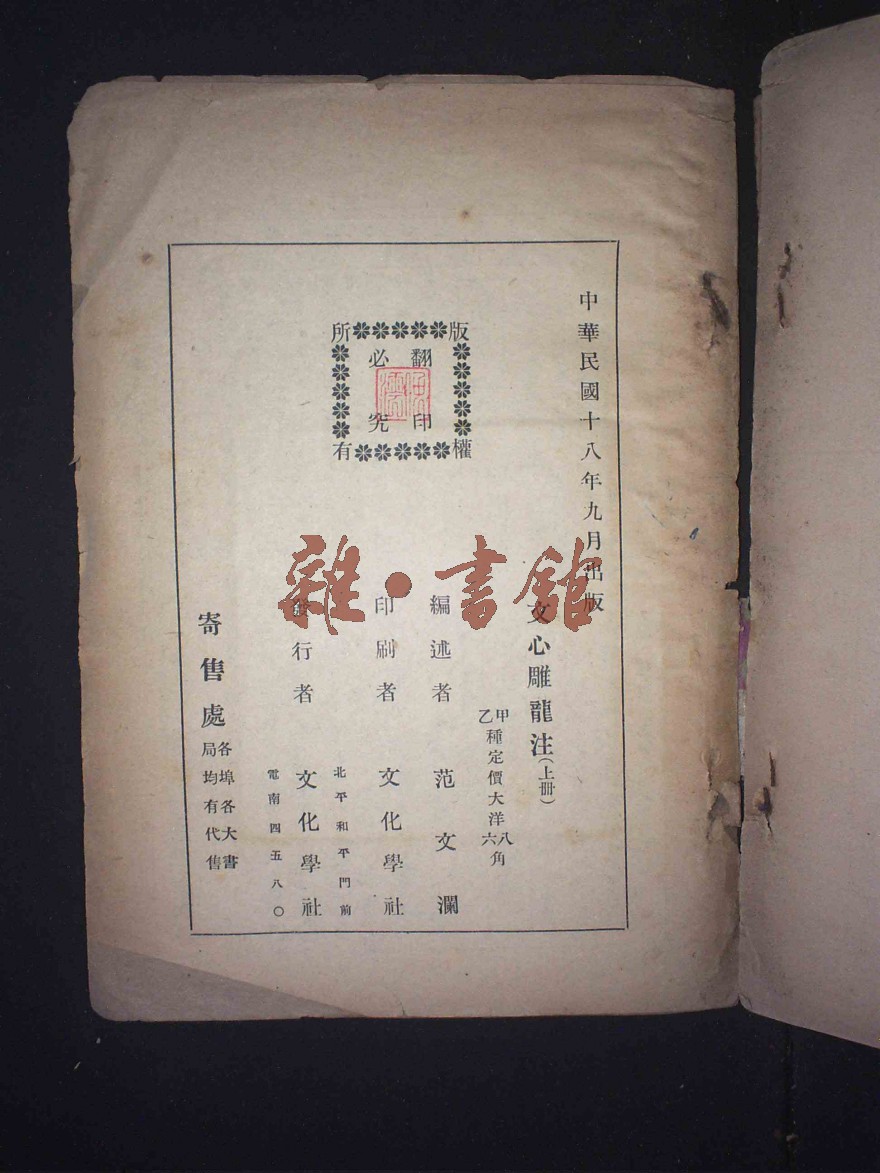 中華民國十八年九月出版
版權所有
翻印必究
文心雕龍注(上册)
甲乙種定價大洋八六角
編述者 范文瀾
印刷者 文化學社
北平和平門前
發行者 文化學社
電南四五八〇
寄售處 各埠各大書局均有代售
雜·書館